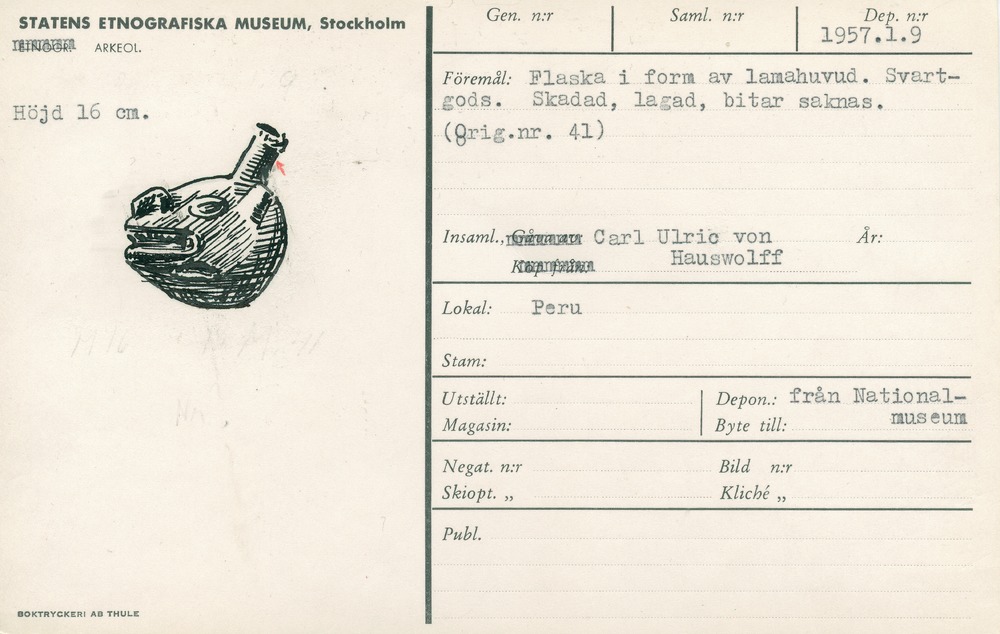 STATENS ETNOGRAFISKA MUSEUM, Stockholm
ETNOGR. ARKEOL.
Höjd 16 cm.
BOKTRYCKERI AB THULE
Gen. n:r
Saml. n:r
Dep. n:r
1957.1.9
Föremål: Flaska i form av lamahuvud. Svart-
gods. Skadad, lagad, bitar saknas.
(Orig.nr. 41)
Insaml., Gåva av Carl Ulric von År:
Köp från: Hauswolff
Lokal: Peru
Stam:
Utställt:
Magasin:
Depon.: från National-
Byte till: museum
Negat. n:r
Bild n:r
Skiopt. „
Kliché „
Publ.